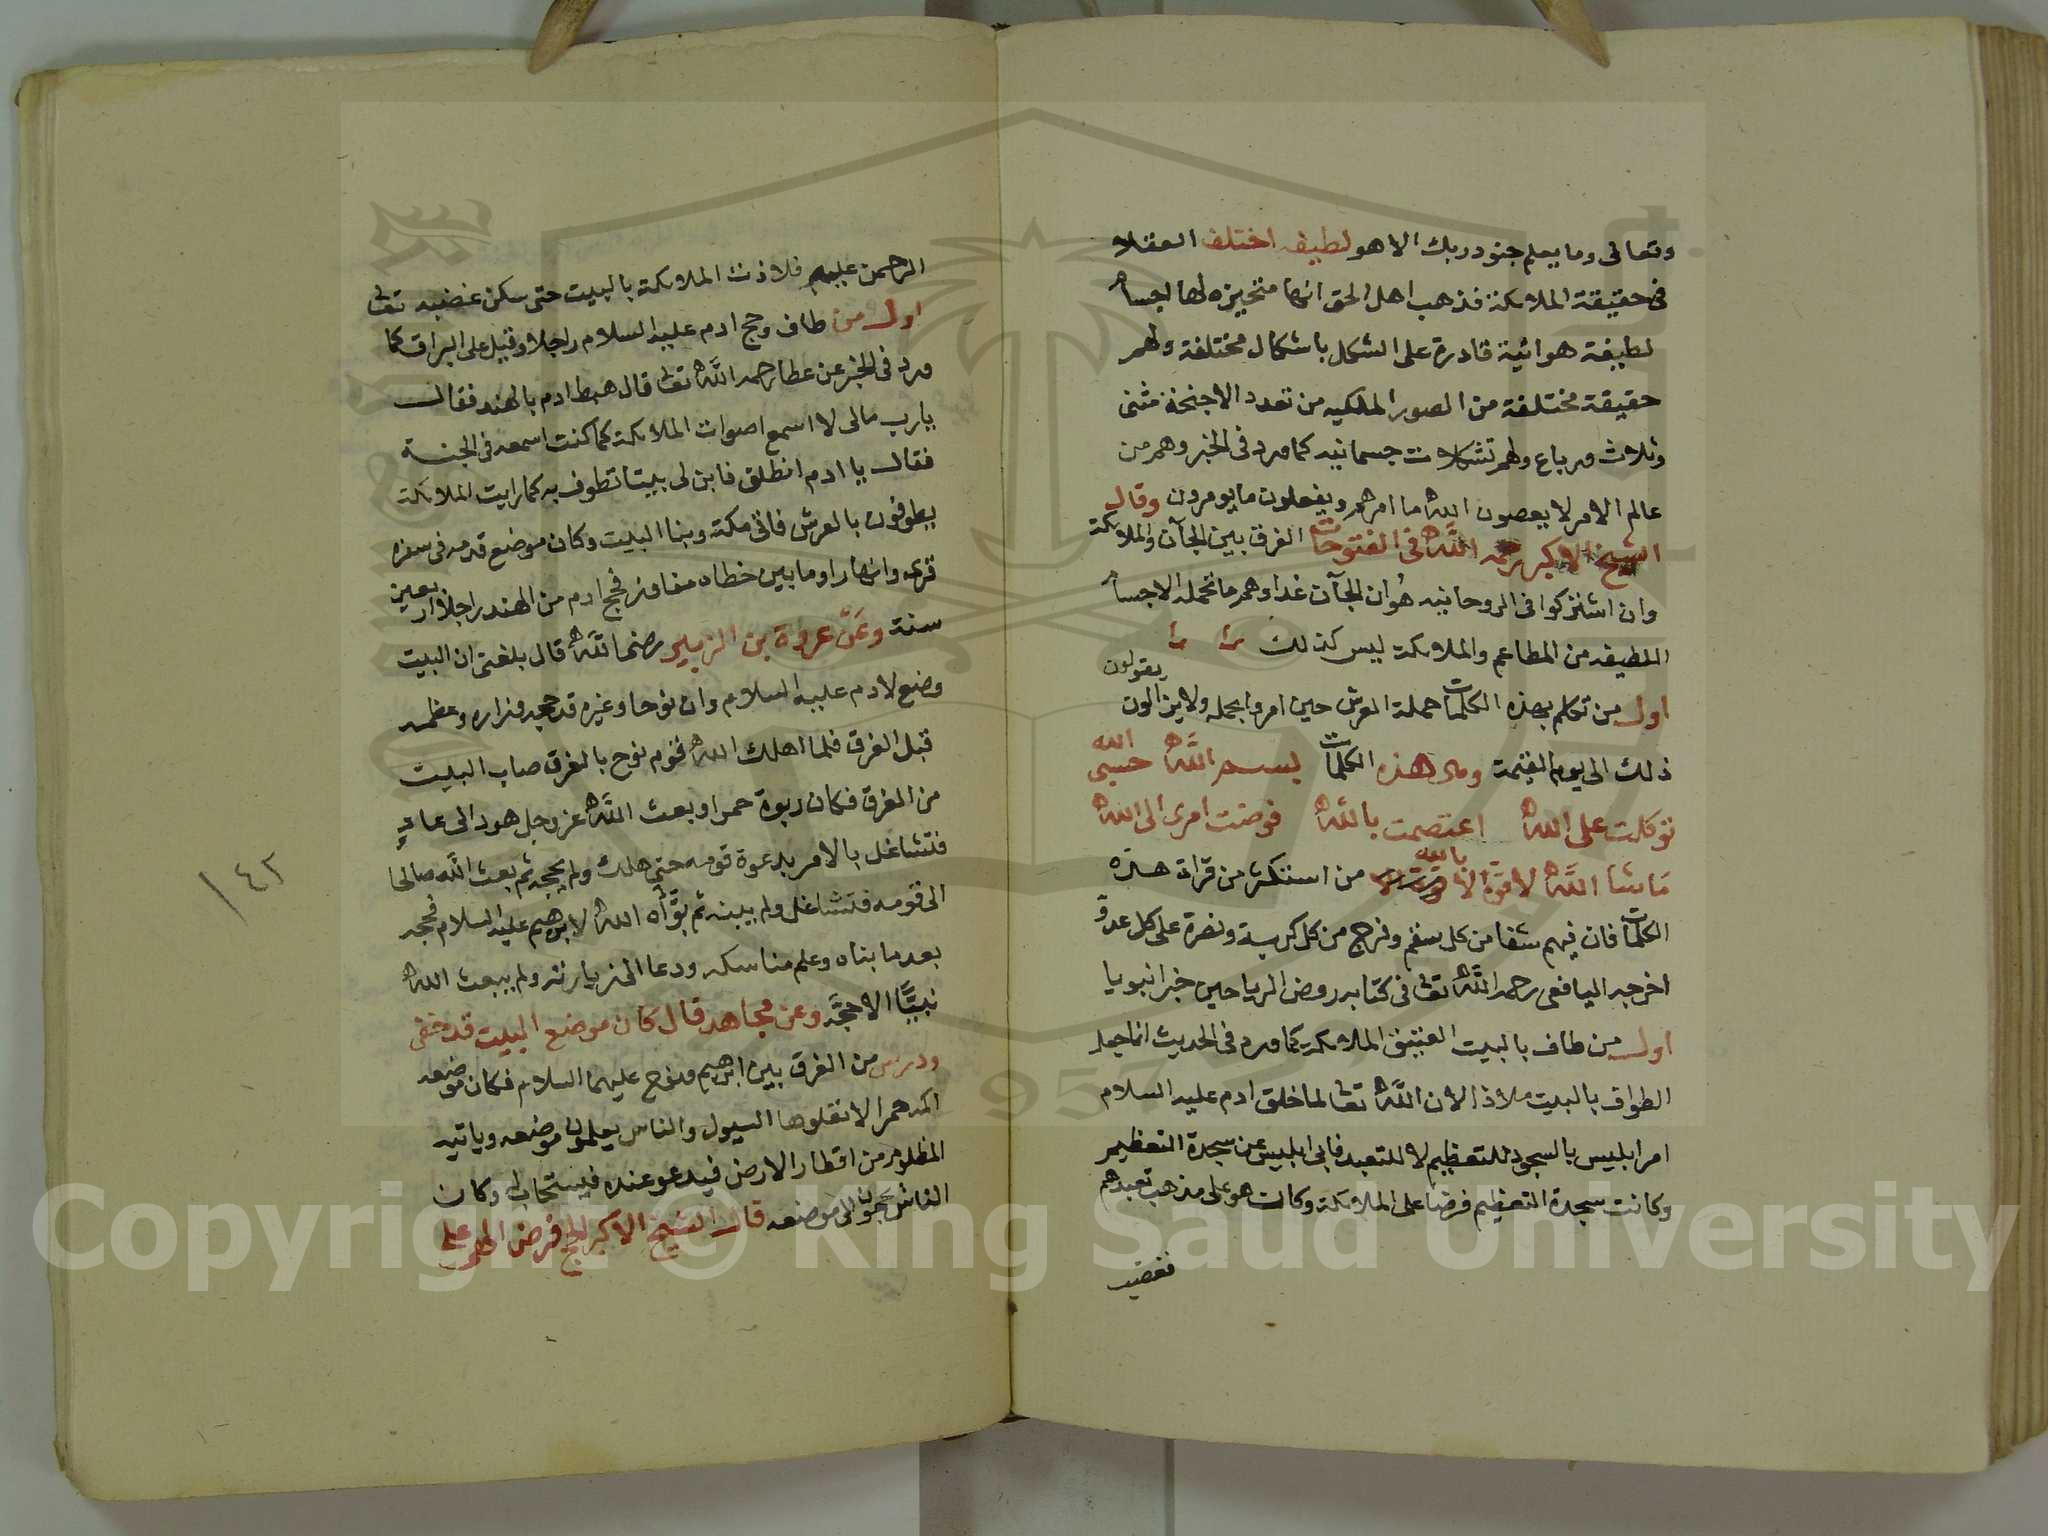 وتعالى وما يعلم جنود ربك الا هو لطيفه اختلف العقلاء
فى حقيقة الملائكة فذهب اهل الحق انها متحيزه لها اجسام
لطيفة هوائية قادرة على الشكل باشكال مختلفة ولهم
حقيقة مختلفة من الصور الملكيه من تعدد الاجنحة مثنى
وثلاث ورباع ولهم تشكلات جسمانيه كما ورد فى الخبر وهم من
عالم الامر لا يعصون الله ما امرهم ويفعلون ما يومرون وقال
الشيخ الاكبر رحمه الله فى الفتوحات الفرق بين الجآن والملائكة
وان اشتركوا فى الروحانيه هو ان الجآن غذاوهم ما تحمله الاجسام
اللطيفه من المطاعم والملائكة ليس كذلك
اول من تكلم بهذه الكلمات حملة العرش حين امروا بحمله ولايزالون يقولون
ذلك الى يوم القيمة وهى هذه الكلمات بسم الله حسبى الله
توكلت على الله اعتصمت بالله فوضت امرى الى الله
ما شا الله لا قوة الا بالله من استكثر من قراة هذه
الكلمات فان فيهم شفا من كل سقم وفرج من كل كربة ونصرة على كل عدو
اخرجه اليافعى رحمه الله تعالى فى كتابه روض الرياحين خبرا نبويا
اول من طاف بالبيت العتيق الملائكة كما ورد فى الحديث انما جعل
الطواف بالبيت ملاذا لان الله تعالى لما خلق ادم عليه السلام
امر ابليس بالسجود للتعظيم لا للتعبد فابى ابليس عن سجدة التعظيم
وكانت سجدة التعظيم فرضا على الملائكة وكانت هو على مذهب تعبدهم
فغضب
الرحمن عليهم فلاذت الملائكة بالبيت حتى سكن غضبه تعالى
اول من طاف وحج ادم عليه السلام راجلا وقيل على البراق كما
ورد فى الخبر عن عطا رحمه الله تعالى قال هبط ادم بالهند فقال
يارب مالى لا اسمع اصوات الملائكة كما كنت اسمعه فى الجنة
فقال يا ادم انطلق فابن لى بيتا تطوف به كما رايت الملائكة
يطوفون بالعرش فاتى مكة وبنا البيت وكان موضع قدمه فى سفره
قرى وانهارا وما بين خطاه مفاوز فحج ادم من الهند راجلا اربعين
سنة وعن عروة بن الزبير رضى الله قال بلغنى ان البيت
وضع لادم عليه السلام وان نوحا وغيره قد حجه وزاره وعظمه
قبل الغرق فلما اهلك الله قوم نوح بالغرق صاب البيت
من الغرق فكان ربوة حمرا وبعث الله عز وجل هود الى عاد
فتشاغل بالامر بدعوة قومه حتى هلك ولم يحجه ثم بعث الله صالحا
الى قومه فتشاغل ولم يبنه ثم بوّأه الله لابرهيم عليه السلام فحجه
بعد ما بناه وعلم مناسكه ودعا الى زيارته ولم يبعث الله
نبيًّا الا حجَّه وعن مجاهد قال كان موضع البيت قد خفى
ودرس من الغرق بين ابرهيم ونوح عليهما السلام فكان موضعه
اكمه حمرا لا تعلوها السيول والناس يعلمون موضعه وياتيه
المظلوم من اقطار الارض فيدعو عنده فيستجاب له وكان
الناس يحجون الى موضعه قال الشيخ الاكبر الحج فرض الهى على
١٤٢
Copyright © King Saud University